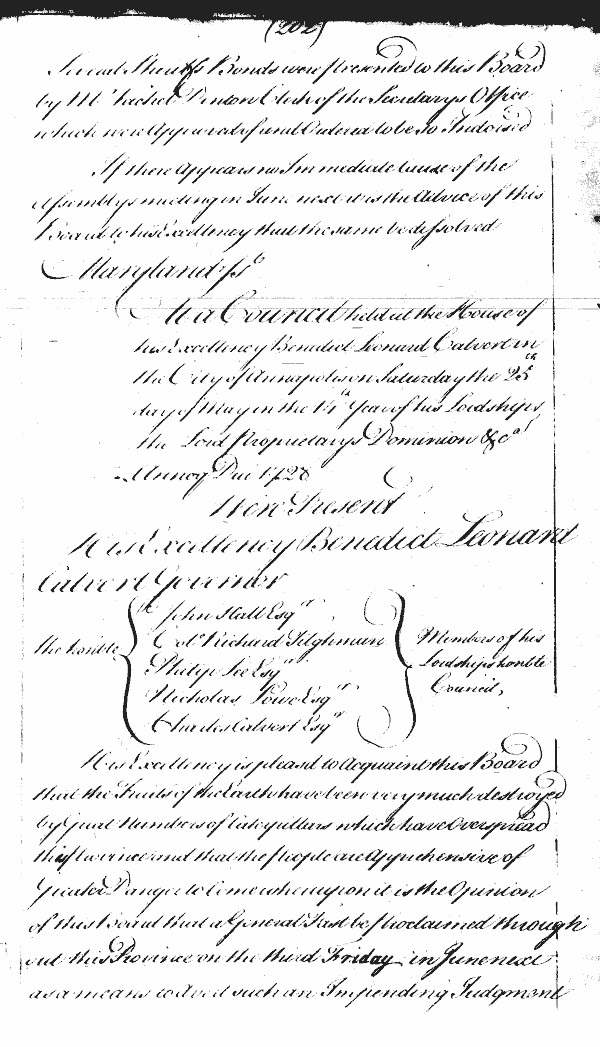 (202)
Several Sheriffs Bonds were presented to this Board
by Mr Vachel Denton Clerk of the Secretarys Office
which were Approved of and Ordered to be so Indorsed
If there appears no Immediate Cause of the
Assemblys meeting in June next it is the Advice of this
Board to his Excellency that the same be dissolved
Maryland ss
At a Council held at the House of
his Excellency Benedict Leonard Calvert in
the City of Annapolis on Saturday the 25th
day of May in the 14th Year of his Lordships
the Lord Proprietarys Dominion &ca
Annoq Dni 1728
Were Present
His Excellency Benedict Leonard
Calvert Governor
the honble
John Hall Esqr
Colo Richard Tilghman
Philip Lee Esqr
Nicholas Lowe Esqr
Charles Calvert Esqr
Members of his
Lordships honble
Council,
His Excellency is pleasd to Acquaint this Board
that the Fruits of the Earth have been very much destroyed
by Great Numbers of Caterpillars which have Overspread
this Province and that the people are Apprehensive of
Greater Danger to Come whereupon it is the Opinion
of this Board that a General Fast be proclaimed through
out this Province on the third Friday in June next
as a means to Avert such an Impending Judgment